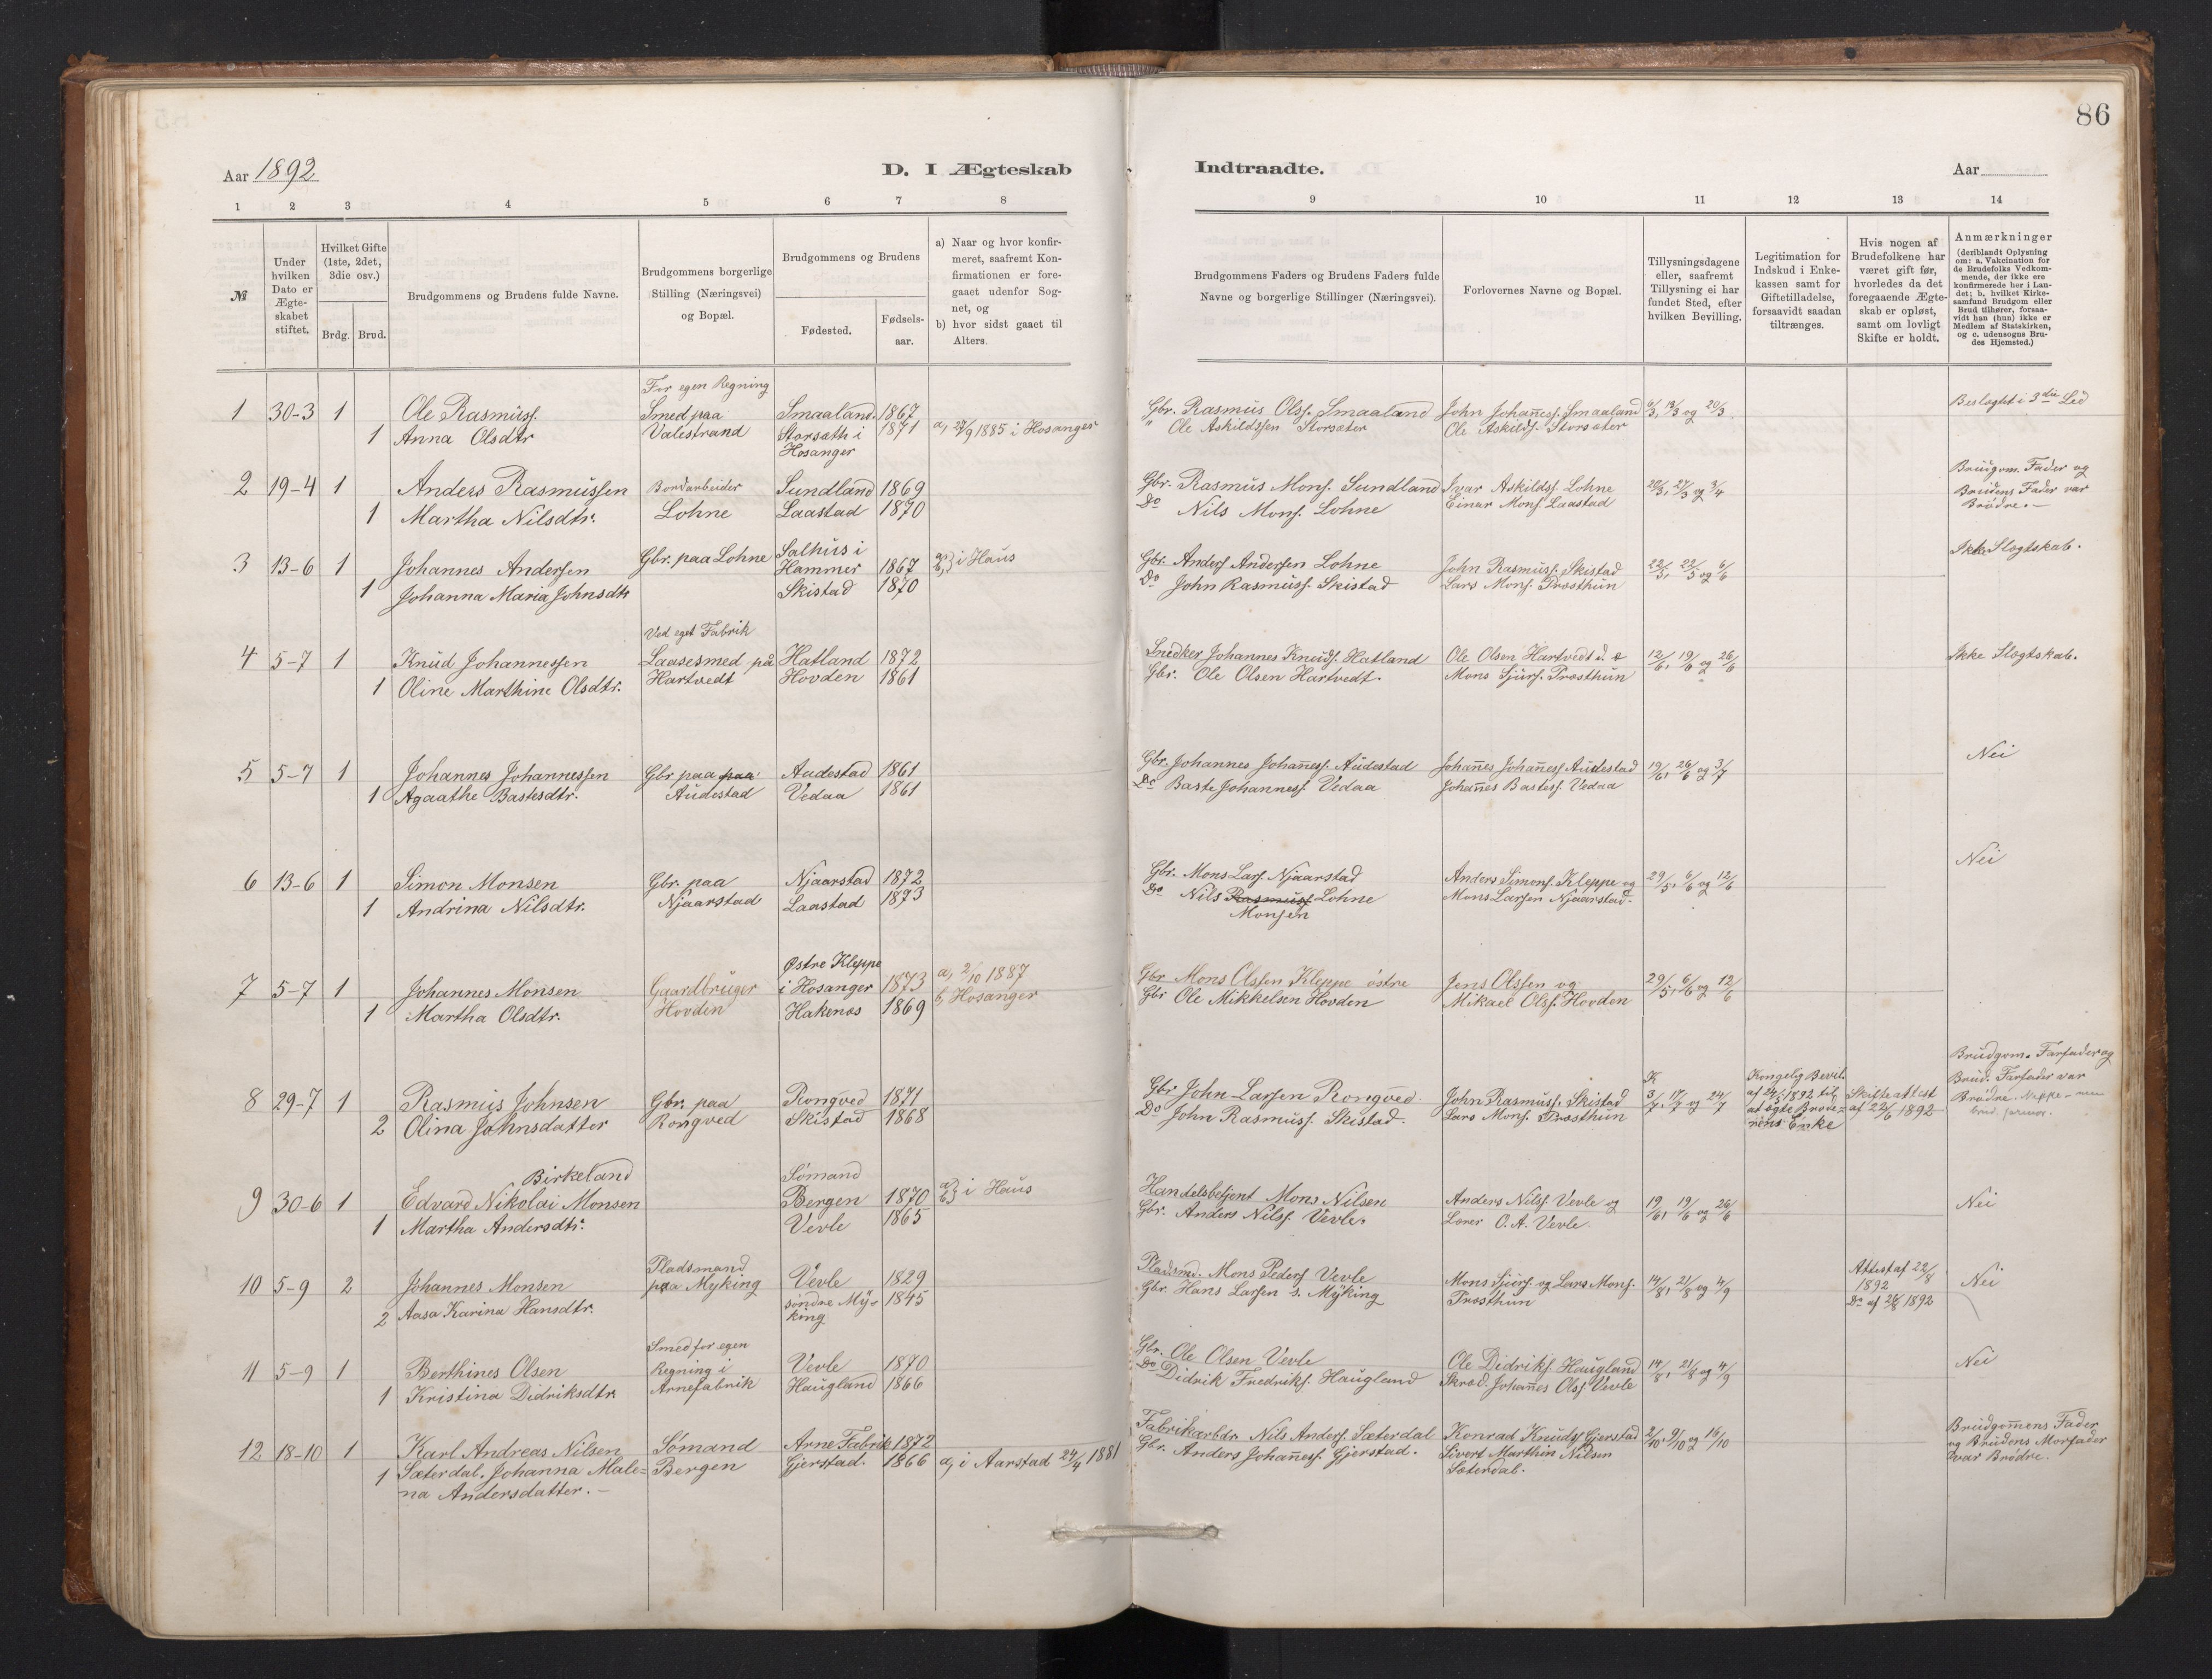 86
Aar 1892
D. I Ægteskab
Indtraadte.
Aar
1 2 3 4 5 6 7 8
9 10 11 12 13 14
№
Under hvilken Dato er Ægte-skabet stiftet.
Hvilket Gifte (1ste, 2det, 3die osv.)
Brdg. Brud.
Brudgommens og Brudens fulde Navne.
Brudgommens borgerlige Stilling (Næringsvei) og Bopæl.
Brudgommens og Brudens
Fødested.
Fødsels-aar.
a) Naar og hvor konfir-meret, saafremt Kon-firmationen er fore-gaaet udenfor Sog-net, og
b) hvor sidst gaaet til Alters.
Brudgommens Faders og Brudens Faders fulde Navne og borgerlige Stillinger (Næringsvei).
Forlovernes Navne og Bopæl.
Tillysningsdagene eller, saafremt Tillysning ei har fundet Sted, efter hvilken Bevilling.
Legitimation for Indskud i Enke-kassen samt for Giftetilladelse, forsaavidt saadan tiltrænges.
Hvis nogen af Brudefolkene har været gift før, hvorledes da det foregaaende Ægte-skab er opløst, samt om lovligt Skifte er holdt.
Anmærkninger (deriblandt Oplysning om: a. Vakcination for de Brudefolks Vedkom-mende, der ikke ere konfirmerede her i Lan-det; b. hvilket Kirke-samfund Brudgom eller Brud tilhører, forsaa-vidt han (hun) ikke er Medlem af Statskirken, og c. udensogns Bru-des Hjemsted.)
For egen Regning
1 30-3 1 Ole Rasmuss. Smed paa Smaaland. 1867
1 Anna Olsdtr Valestrand Storsæth i 1871 a, 27/9 1885 i Hosanger
Hosanger
Gbr. Rasmus Olss. Smaaland John Johañess. Smaaland 6/3, 13/3 og 20/3 Beslægtet i 3die Led
" Ole Askildssen Storsæter Ole Askilds. Storsæter
2 19-4 1 Anders Rasmussen Bordarbeider Sundland 1869
1 Martha Nilsdtr. Lohne Laastad 1870
Gbr. Rasmus Mons. Sundland Ivar Askildss. Lohne 20/3, 27/3 og 3/4 Brudgom. Fader og
Do Nils Mons. Lohne Einar Mons. Laastad Brudens Fader var
Brødre. —
3 13-6 1 Johannes Anderssen Gbr. paa Lohne Salhus i
Hammer 1867 a, b, i Haus
1 Johanna Maria Johnsdtr Skistad 1870
Gbr. Anders Anderssen Lohne John Rasmuss. Skistad 22/5, 29/5 og 6/6 Ikke Slægtskab.
Do John Rasmuss. Skistad Lars Mons. Præsthun
Ved eget Fabrik
4 5-7 1 Knud Johannessen Laasesmed på Hatland 1872
1 Oline Marthine Olsdtr. Hartvedt Hovden 1861
Snedker Johannes Knuds. Hatland Ole Olsen Hartvedt 12/6, 19/6 og 26/6 Ikke Slægtskab.
Gbr. Ole Olsen Hartvedt. Mons Sjurs. Præsthun
5 5-7 1 Johannes Johannessen Gbr. paa paa Audestad 1861
1 Agaathe Bastesdtr. Audestad Vedaa 1861
Gbr. Johannes Johañess. Audestad Johañes Johañess. Audestad 19/6, 26/6 og 3/7 Nei
Do Baste Johanness. Vedaa Johañes Bastess. Vedaa
6 13-6 1 Simon Monsen Gbr. paa Njaarstad 1872
1 Andrina Nilsdtr. Njaarstad Laastad 1873
Gbr. Mons Lars. Njaarstad Anders Simons. Kleppe og 29/5, 6/6 og 12/6 Nei
Do Nils Rasmuss. Lohne Mons Larsen Njaarstad.
Monsen
Østre Kleppe
7 5-7 1 Johannes Monsen Gaardbruger i Hosanger 1873 a, 2/10 1887
1 Martha Olsdtr. Hovden Hakenæs 1869 b, Hosanger
Gbr Mons Olssen Kleppe østre Jens Olssen og 29/5, 6/6 og 12/6
Gbr Ole Mikkelsen Hovden Mikael Olss. Hovden
8 29-7 1 Rasmus Johnsen Gbr. paa Rongved 1871
2 Olina Johnsdatter Rongved Skistad 1868
Gbr John Larsen Rongved. John Rasmuss. Skistad K 3/7, 17/7 og 24/7
Do John Rasmuss. Skistad. Lars Mons. Præsthun
Kongelig Bevil.
af 24/5 1892 til
at ægte Brode=
rens Enke
Skifteattest
af 22/6 1892
Brudgom. Farfader og
Brud. Farfader var
Brødre.
Birkeland Sømand
9 30-6 1 Edvard Nikolai Monsen Bergen 1870 a, b, i Haus
1 Martha Andersdtr. Vevle 1865
Handelsbetjent Mons Nilsen Anders Nilss. Vevle og 19/6, 19/6 og 26/6 Nei
Gbr. Anders Nilss. Vevle. Lærer O. A. Vevle.
Pladsmand
10 5-9 2 Johannes Monsen paa Myking Vevle 1829
2 Aasa Karina Hansdtr. søndre My- 1845
king
Pladsmd. Mons Peders. Vevle Mons Sjurs. og Lars Mons. 14/8, 21/8 og 4/9
Gbr. Hans Larsen s. Myking Præsthun
Attest af 22/8
1892
Do af 26/8 1892
Nei
Smed for egen
11 5-9 1 Berthines Olsen Regning i Vevle 1870
1 Kristina Didriksdtr Arnefabrik Haugland 1866
Gbr. Ole Olsen Vevle Ole Didriks. Haugland 14/8, 21/8 og 4/9 Nei
Do Didrik Fredriks. Haugland Skræd. Johañes Olss. Vevle
12 18-10 1 Karl Andreas Nilsen Sømand Arne Fabrik 1872
1 Sæterdal. Johanna Male= Bergen Gjerstad. 1866 a, i Aarstad 24/4 1881
na Andersdatter. —
Fabrikarbdr. Nils Anders. Sæterdal Konrad Knuds. Gjerstad 2/10, 9/10 og 16/10 Brudgom̃ens Fader
Gbr. Anders Johañess. Gjerstad. Sivert Marthin Nilsen og Brudens Morfader
Sæterdal. var Brødre.